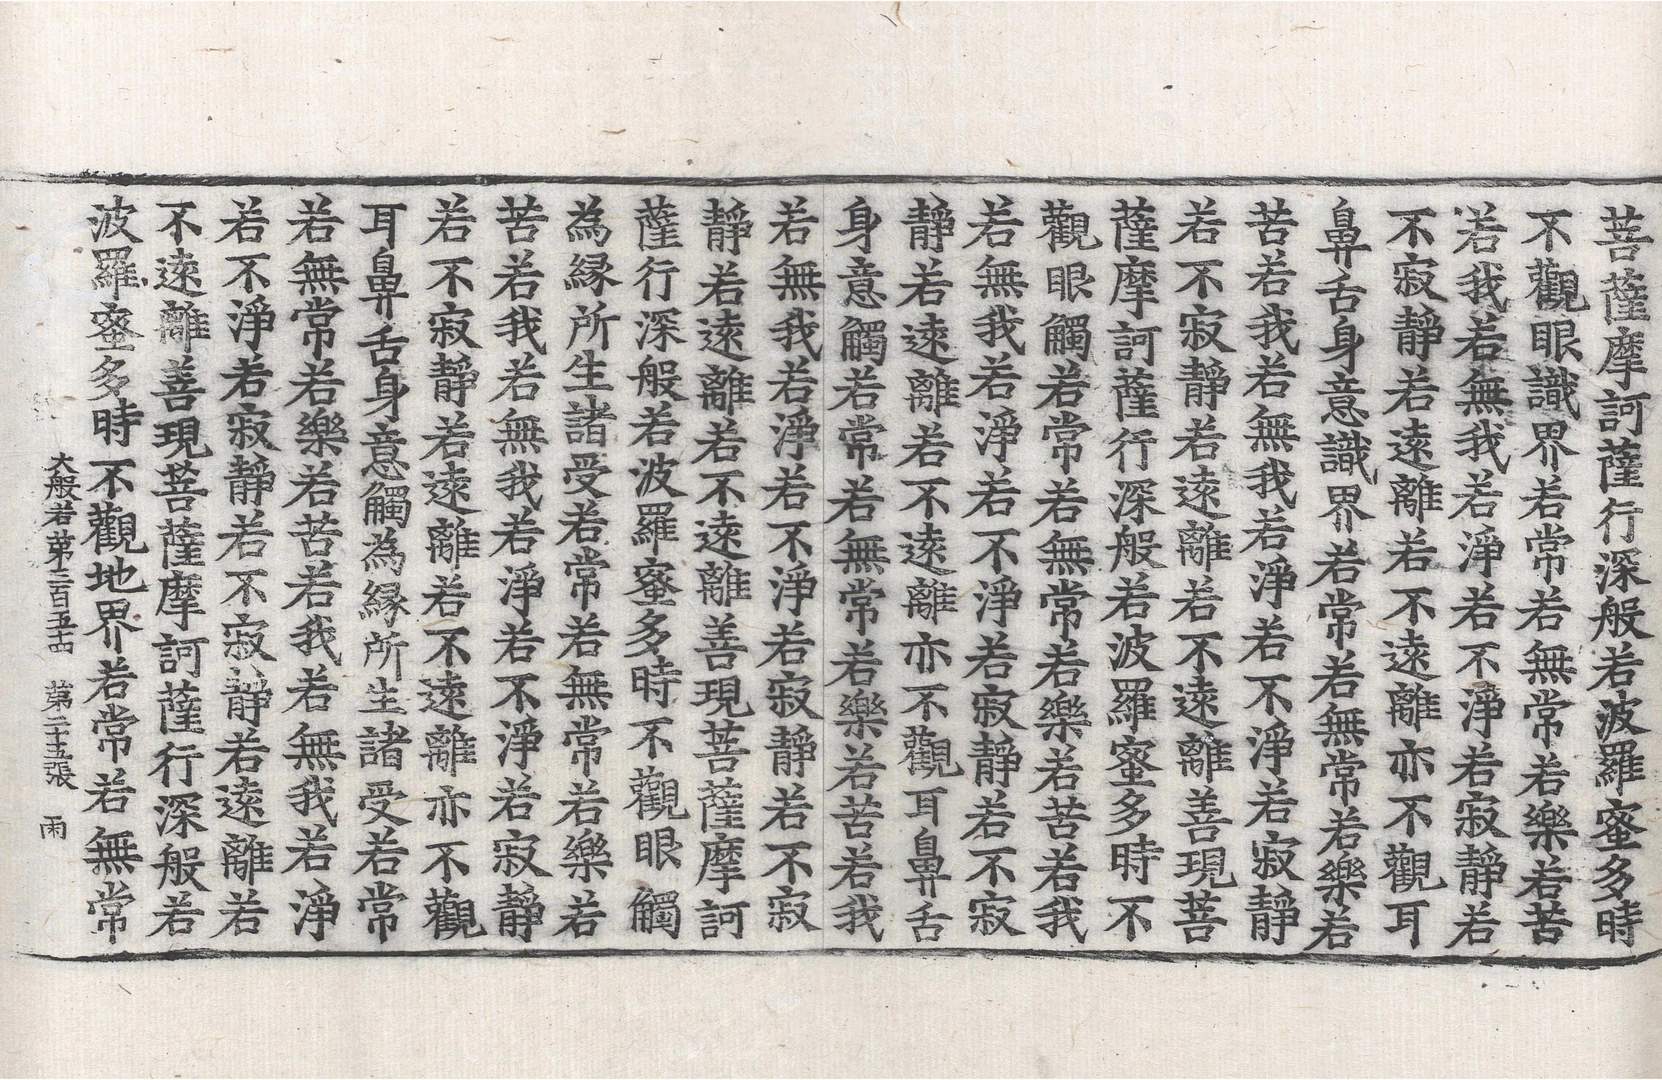 菩薩摩訶薩行深般若波羅蜜多時
不觀眼識界若常若無常若樂若苦
若我若無我若淨若不淨若寂靜若
不寂靜若遠離若不遠離亦不觀耳
鼻舌身意識界若常若無常若樂若
苦若我若無我若淨若不淨若寂靜
若不寂靜若遠離若不遠離善現菩
薩摩訶薩行深般若波羅蜜多時不
觀眼觸若常若無常若樂若苦若我
若無我若淨若不淨若寂靜若不寂
靜若遠離若不遠離亦不觀耳鼻舌
身意觸若常若無常若樂若苦若我
若無我若淨若不淨若寂靜若不寂
靜若遠離若不遠離善現菩薩摩訶
薩行深般若波羅蜜多時不觀眼觸
為緣所生諸受若常若無常若樂若
苦若我若無我若淨若不淨若寂靜
若不寂靜若遠離若不遠離亦不觀
耳鼻舌身意觸為緣所生諸受若常
若無常若樂若苦若我若無我若淨
若不淨若寂靜若不寂靜若遠離若
不遠離善現菩薩摩訶薩行深般若
波羅蜜多時不觀地界若常若無常
大般若第三百五十四 第二十五張 雨